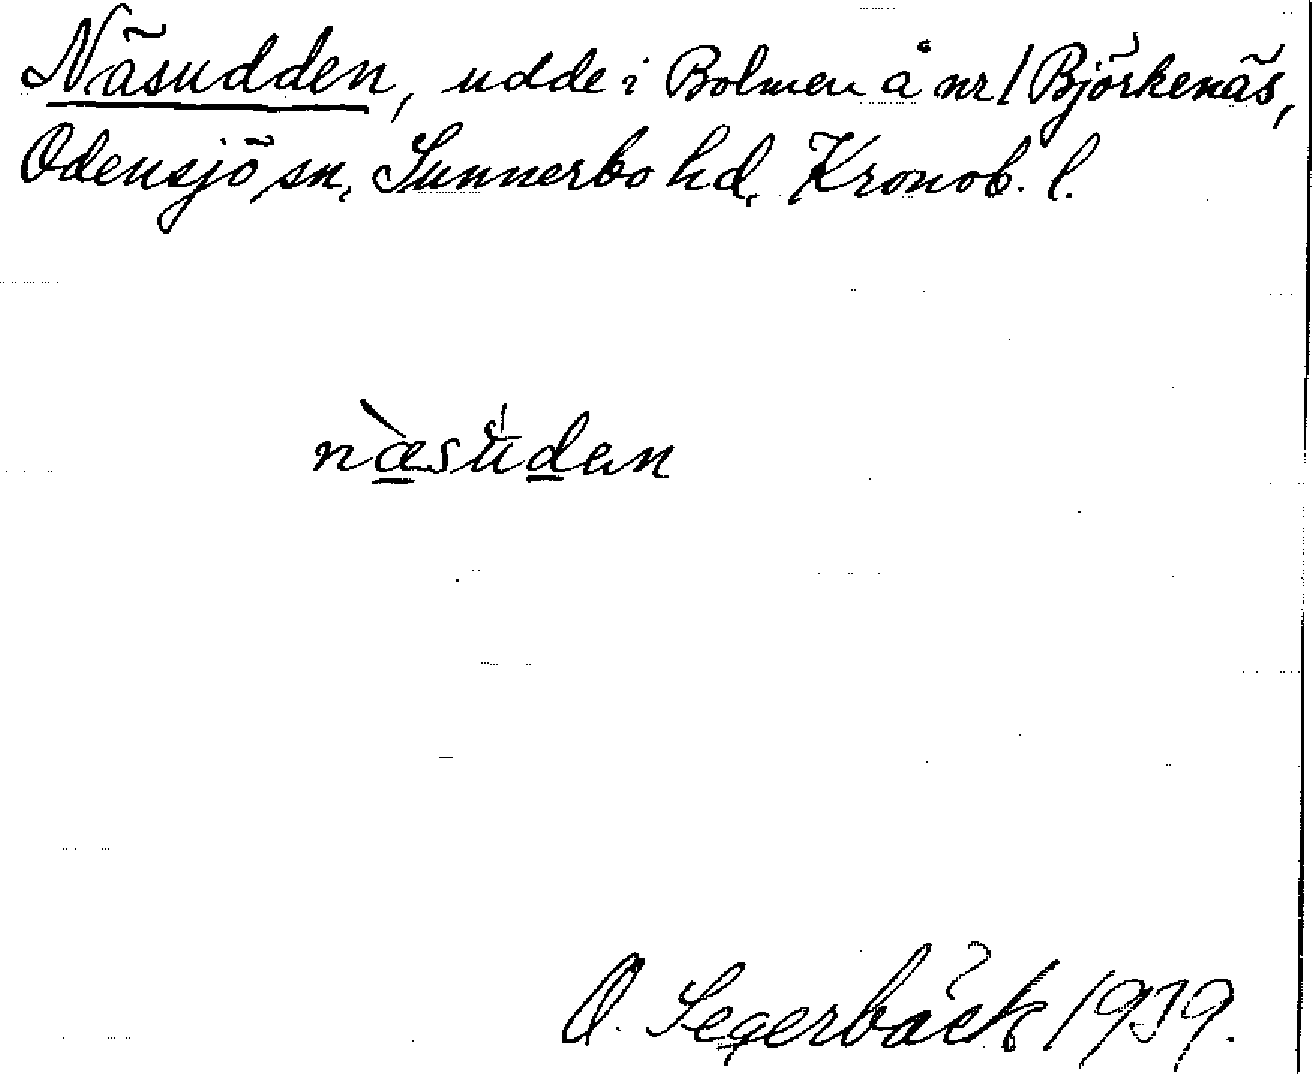 Näsudden, udde i Bolmen å nr 1 Björkenäs,
Odensjö sn, Sunnerbo hd, Kronob. l.
næ̀su̍dan
O. Segerbäck 1939.